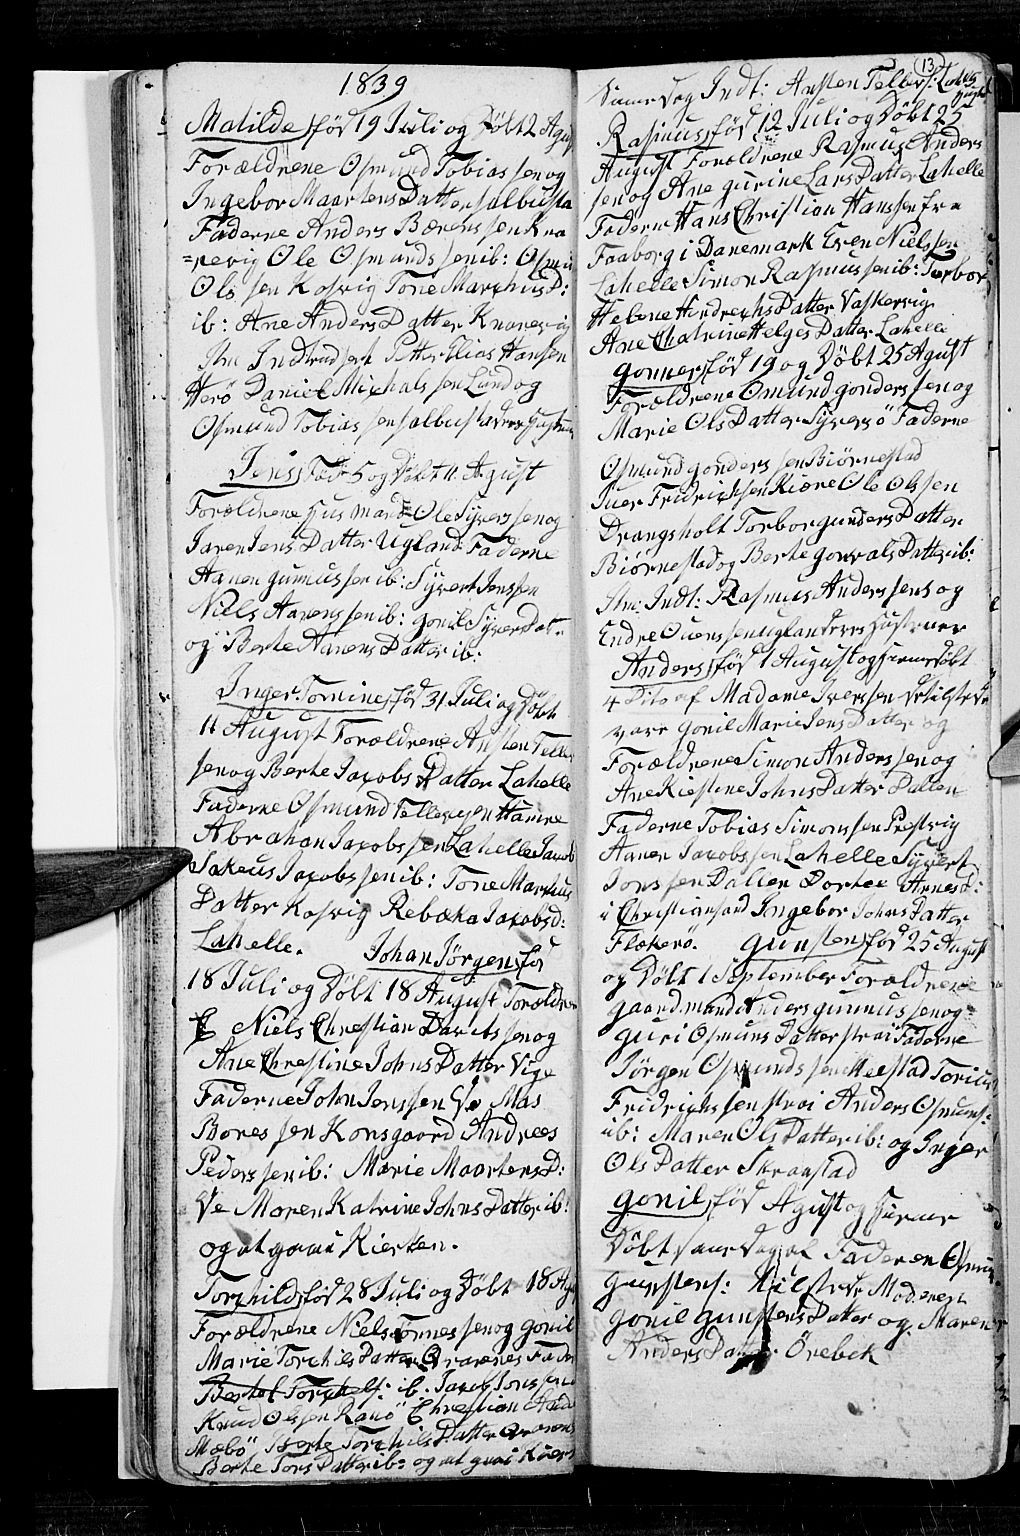 1839
Matilde född 19 Juli og Döbt 2 Agust
Forældrene Osmund Tobiassen og
Ingebor Maartens Datter salbusta
Faderne Anders Bærenssen Kna
=revig Ole Osmundssen ib: Osmun
Olssen Kosvig Tone Marxhus D:
ib: Ane Anders Datter Knarevig
Stm Indtrad sert Petter Elias Hansen
Herö Daniel Michalssen Lund og
Osmund Tobiassen salbustad
Jens Föd 5 og Döbt 11 Agust
Forældrene Husmand Ole Syverssen og
Jaren Jens Datter Ugland Faderne
Aanen gunnussen ib: Syvert Jenssen
Niels Aanenssen ib: gonil Syvers Dat-
og Berte Aanens Datter ib:
Inger Tomine föd 31 Juli og Döbt
11 August Forældrene Ansten Telle
sen og Berte Jacobs Datter Lahelle
Faderne Osmund Tellevsen Hamre
Abrahan Jacobssen Lahelle Jacob
Sakeus Jacobssen ib: Tone Marxhus
Datter Kosvig Rebæka Jacobs D:
Lahelle. Johan Jörgen föd
18 Juli og Döbt 18 August Forældrene
Niels Christian Davitssen og
Ane Chrestine Johns Datter Vige
Faderne John Jenssen Ve Mas
Boressen Konsgaard Andrees
Pederssen ib: Marie Maartens D:
Ve Maren Katrine Johns Datter ib:
og at gaai Kierken.
Torkild föd 28 Juli og Döbt 18 Agu
Forældrene Niels Tönnessen og Gonil
Marie Torchils Datter Fade
Bertel Torchels: ib. Jacob Jonssen
Knud Olssen Ranö Christian
Mæbö Berte Torchils Datter
Berte Tors Datter ib: og at gaai Kierk
13
Samedag Indt: Ansten Tellefs: Lahelle
Rasmus föd 12 Juli og Döbt 25
August Foroldrene Rasmus Anders
sen og Ane gurine Lars Datter Lahelle
Faderne Hans Christian Hanssen fra
Faaborg i Danemark Even Nielssen
Lahelle Simon Rasmussen ib: Torbor
Helene Hindrechs Datter Vaskervig
Ane Chatrine Helges Datter Lahelle
Gonner föd 19 og Döbt 25 Agust
Forældrene Osmund gonderssen og
Marie Ols Datter Syversö Faderne
Osmund gonderssen Biørnestad
Iuer Fridrichsen Kiære Ole Olssen
Drangsholt Torbor gunders Datter
Biørnestad og Berte gonvals Datter ib:
Stm: Indt: Rasmus Anderssens og
Endre Ouenssen Ugland deres Hustruer
Anders föd 1 August og Hjemedöbt
4 Dito af Madame Iverssen
vare gonil Marie Jens Datter og
Forældrene Simon Anderssen og
Ane Kiestine Johns Datter Dalen
Faderne Tobias Simonssen Prestvig
Aanen Jacobssen Lahelle Syvert
Jonssen Dalen Dortee Arnes D:
i Christiansand Ingebor Johns Datter
Flekerö. Gunsten föd 25 August
og Döbt 1 September Forældrene
gaardmand Anders gunnussen og
guri Osmuns Datter strai Faderne
Jörgen Osmundssen Meestad Torius
Fridrichssen strai Anders Osmuns:
ib: Maren Ols Datter ib: og Inger
Ols Datter Skraastad
Gonil föd Agust og Hieme
Döbt same Dag af Faderen Osmun
Gunstens: Modenen
Gonil gunstens Datter og Maren
Anders Datter Örebek